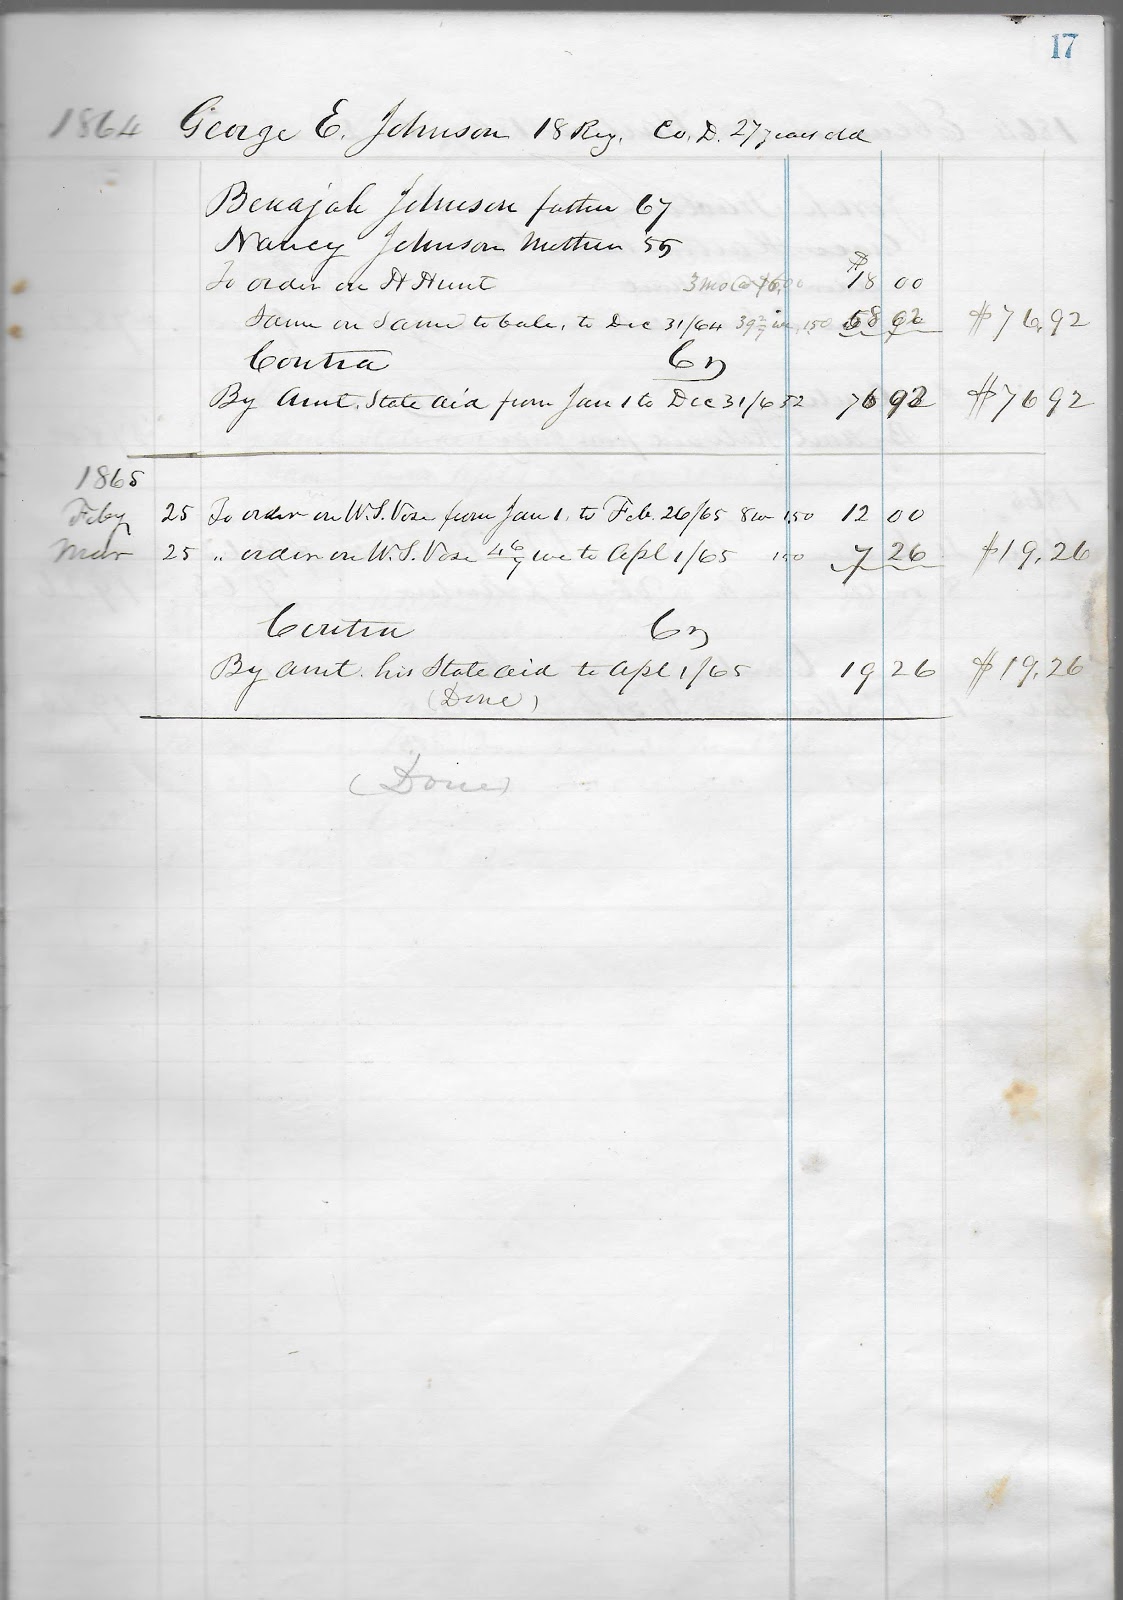 17
1864 George E. Johnson 18 Reg. Co. D. 27 years old
Benajah Johnson father 67
Nancy Johnson Mother 55
To order on H Hunt 3 mo @ $6.00 $18 00
Same on Same to bale, to Dec 31/64 39 2/7 we 1,50 58 92 $76.92
Contra Cr
By Amt. State aid from Jan 1 to Dec 31/6 52 76 92 $76 92
1865
Feby 25 To order on W.S. Vose from Jan 1. to Feb. 26/65 8w 1,50 12 00
Mar 25 " order on W.S. Vose 4 6/7 we to Apl 1/65 1 50 7 26 $19.26
Contra Cr
By Amt. his State aid to Apl 1/65 19 26 $19.26
(Done)
(Done)